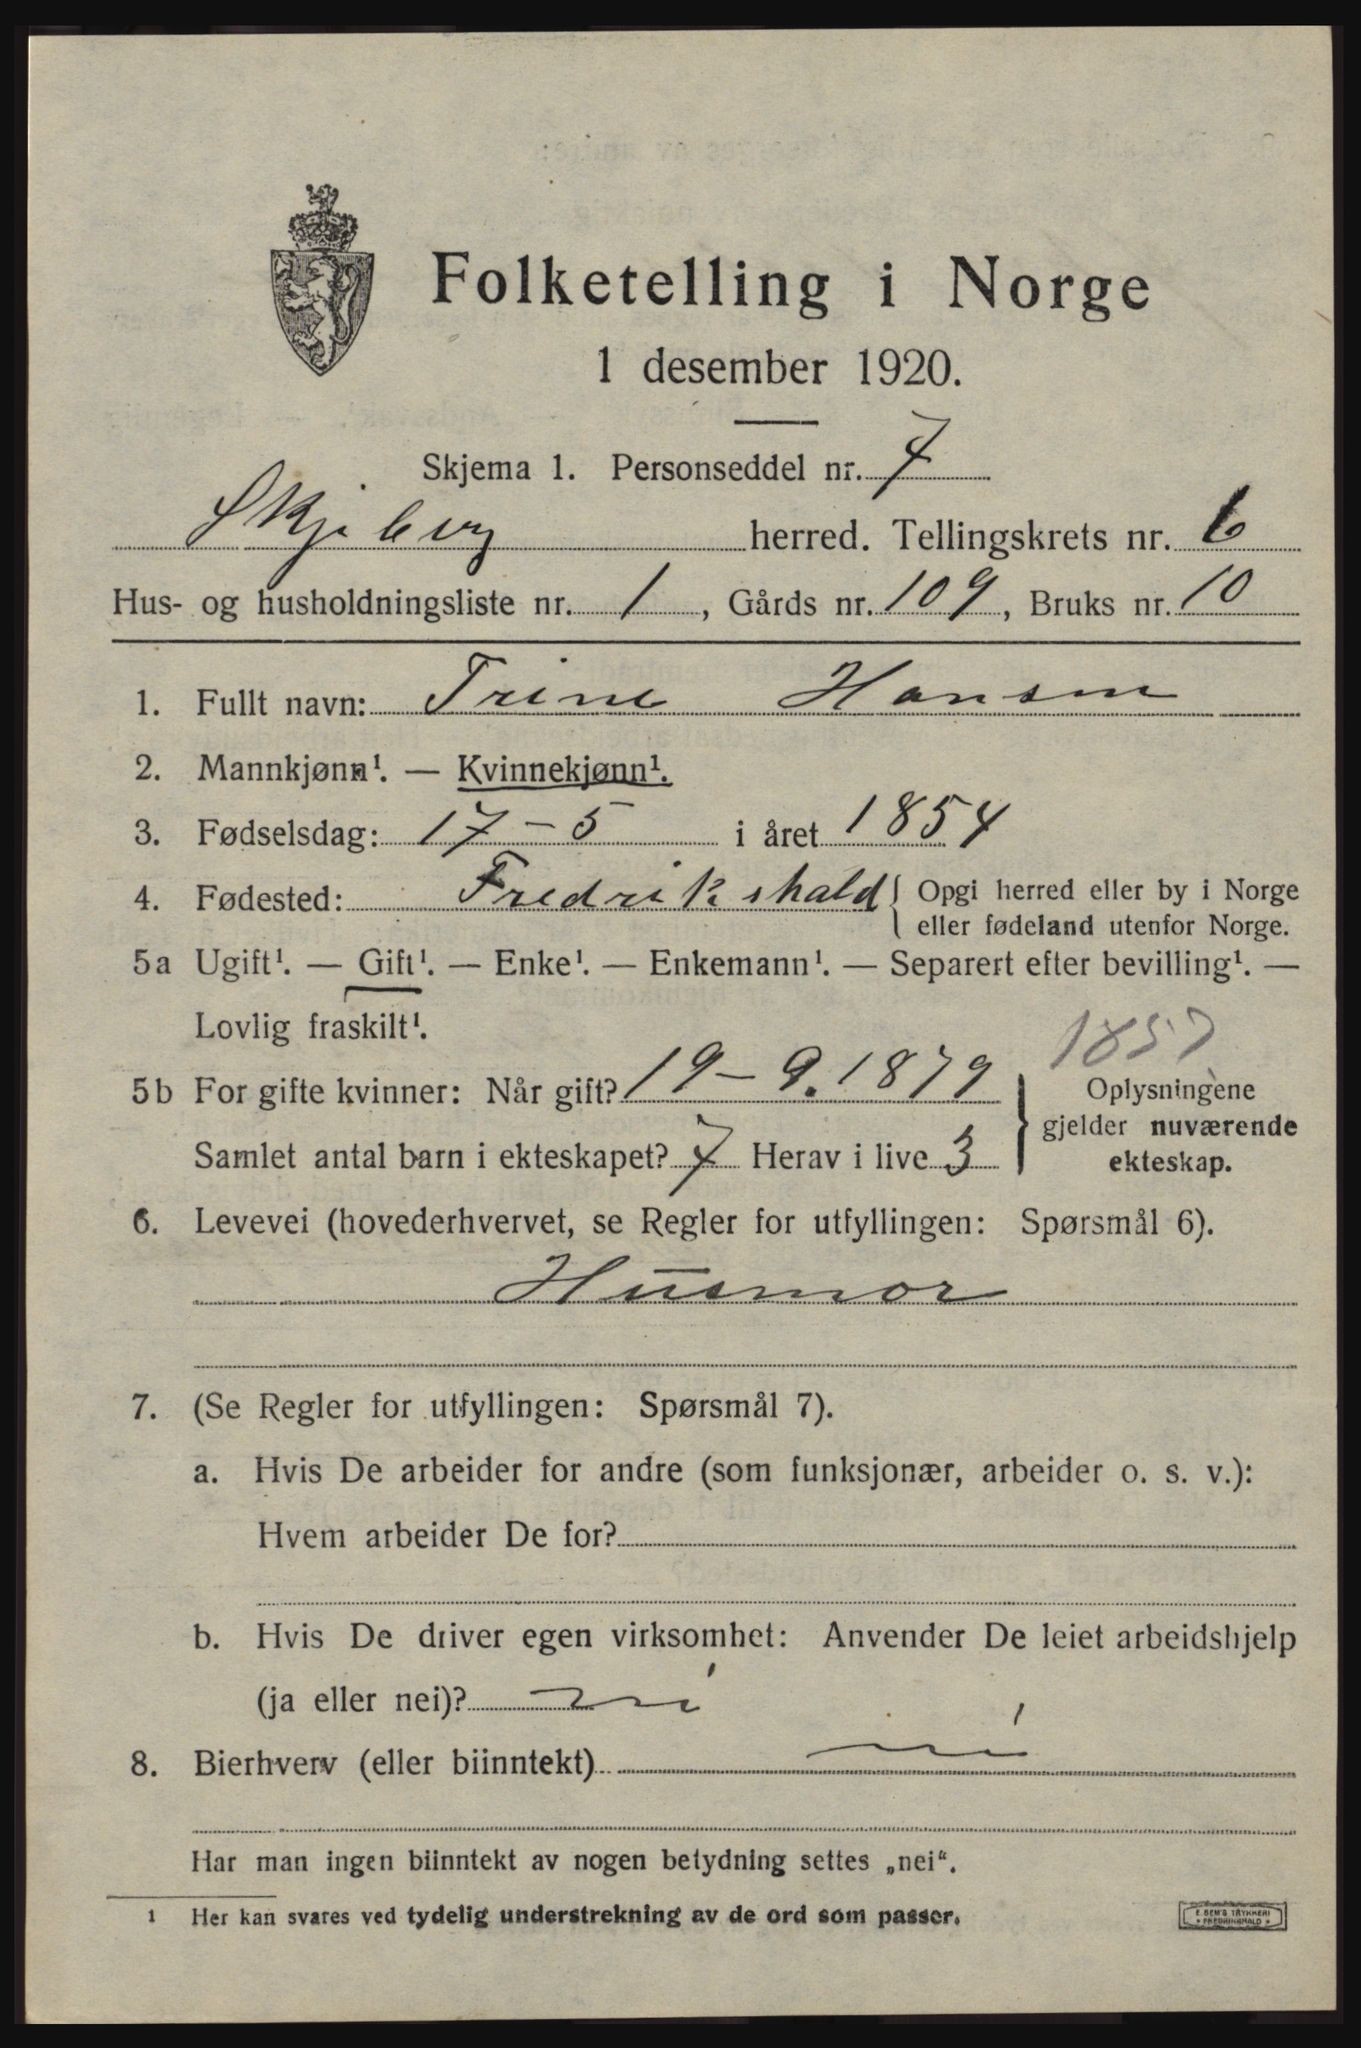 Folketelling i Norge
1 desember 1920.
Skjema 1. Personseddel nr. 7
Skjeberg herred. Tellingskrets nr. 6
Hus- og husholdningsliste nr. 1, Gårds nr. 109, Bruks nr. 10
1. Fullt navn: Trine Hansen
2. Mannkjønn¹. — Kvinnekjønn¹.
3. Fødselsdag: 17-5 i året 1854
4. Fødested: Fredrikshald { Opgi herred eller by i Norge
eller fødeland utenfor Norge.
5a Ugift¹. — Gift¹. — Enke¹. — Enkemann¹. — Separert efter bevilling¹. —
Lovlig fraskilt¹.
1857
5b For gifte kvinner: Når gift? 19-9.1879
Samlet antal barn i ekteskapet? 7 Herav i live 3
} Oplysningene
gjelder nuværende
ekteskap.
6. Levevei (hovederhvervet, se Regler for utfyllingen: Spørsmål 6).
Husmor
7. (Se Regler for utfyllingen: Spørsmål 7).
a. Hvis De arbeider for andre (som funksjonær, arbeider o. s. v.):
Hvem arbeider De for?
b. Hvis De driver egen virksomhet: Anvender De leiet arbeidshjelp
(ja eller nei)? nei
8. Bierhverv (eller biinntekt) nei
Har man ingen biinntekt av nogen betydning settes „nei“.
1 Her kan svares ved tydelig understrekning av de ord som passer.
E. SEM'S TRYKKERI
* FREDRIKSHALD *